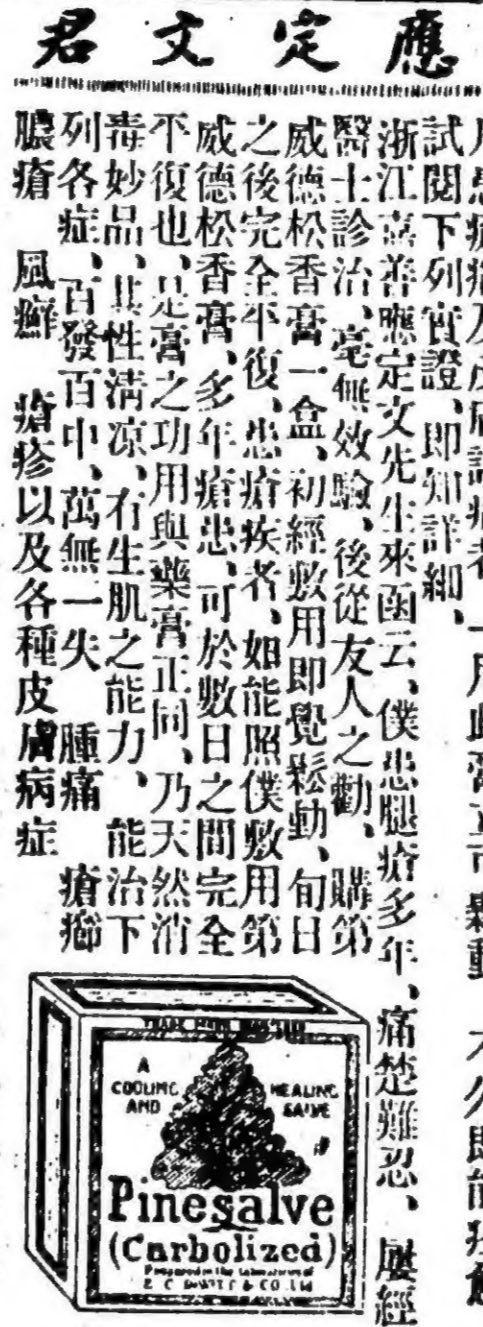 應定文君
試閱下列實證、即知詳細、
浙江嘉善應定文先生來函云、僕患腿瘡多年、痛楚難忍、屢經
醫士診治、毫無效驗、後從友人之勸、購第
威德松香膏一盒、初經敷用即覺鬆動、旬日
之後完全平復、患瘡疾者、如能照僕敷用第
威德松香膏、多年瘡患、可於數日之間完全
平復也、是膏之功用與藥膏正同、乃天然消
毒妙品、其性清凉、有生肌之能力、能治下
列各症、百發百中、萬無一失　腫痛　瘡癤
膿瘡　風癬　瘡疹以及各種皮膚病症
TRADE MARK
A
COOLING
AND
HEALING
SALVE
Pinesalve
(Carbolized)
Prepared in the Laboratories of
E. C. DEWITT & CO. LTD